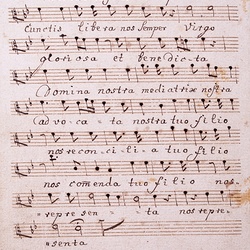 Cunctis libera nos semper Virgo
gloriosa et benedicta
Domina nostra mediatrix nostra
advoca - ta nostra tuo filio
nos reconci - li - a tuo filio
nos comenda tuo filio nos
repre sen - ta nos repre -
senta